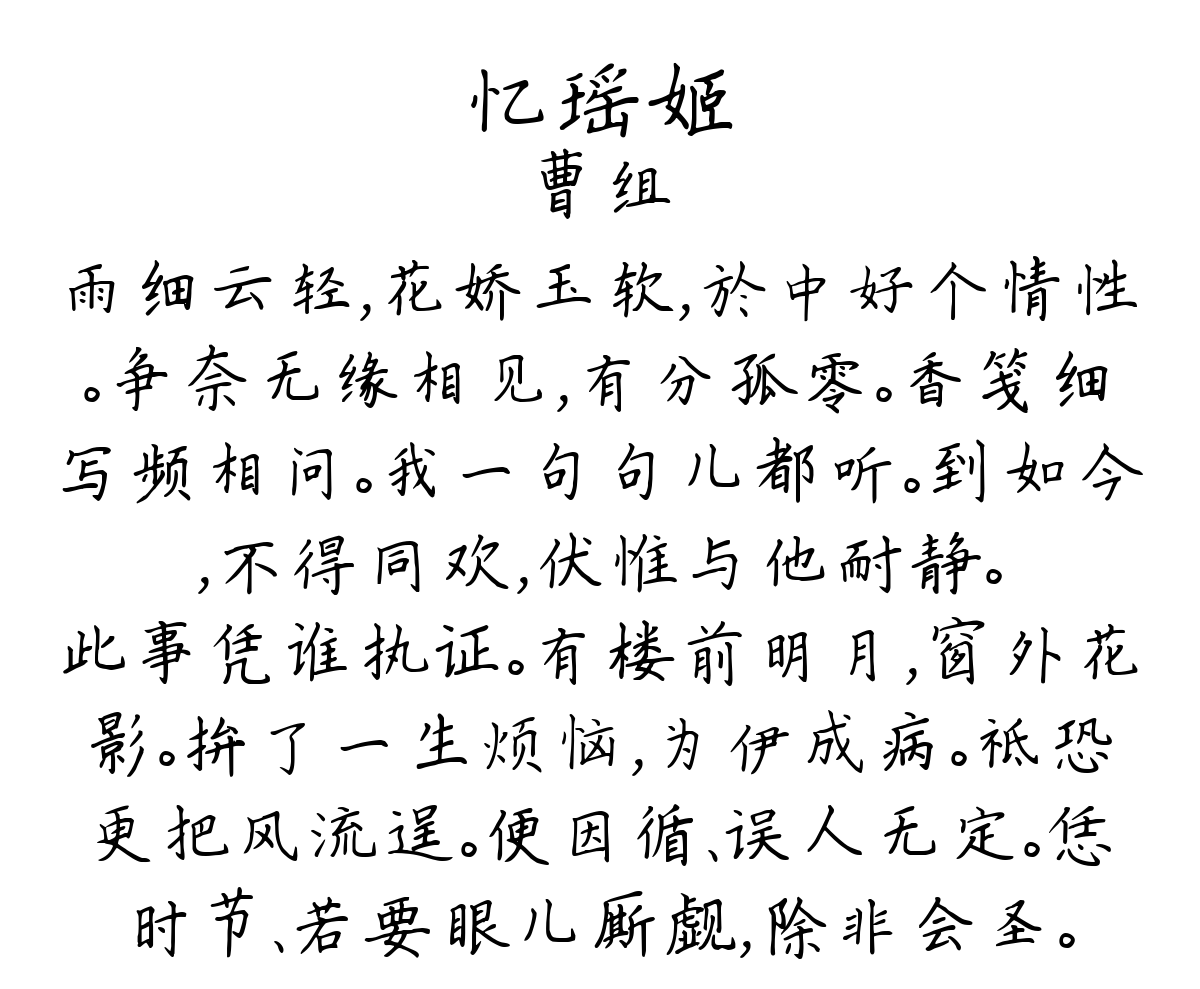 忆瑶姬
曹组
雨细云轻,花娇玉软,於中好个情性
。争奈无缘相见,有分孤零。香笺细
写频相问。我一句句儿都听。到如今
,不得同欢,伏惟与他耐静。
此事凭谁执证。有楼前明月,窗外花
影。拚了一生烦恼,为伊成病。祗恐
更把风流逞。便因循、误人无定。恁
时节、若要眼儿厮觑,除非会圣。